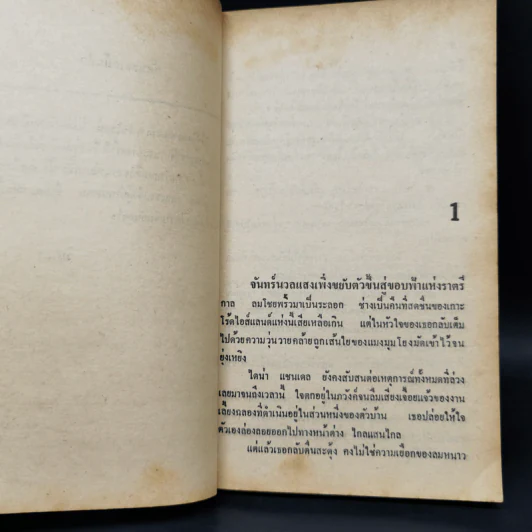 1
จันทร์นวลแสงเพิ่งขยับตัวขึ้นสู่ขอบฟ้าแห่งราตรี
กาล ลมโชยพริ้วมาเป็นระลอก ช่างเป็นคืนที่สดชื่นของเกาะ
โร้ดไอส์แลนด์แห่งนี้เสียเหลือเกิน แต่ในหัวใจของเธอกลับเต็ม
ไปด้วยความวุ่นวายคล้ายถูกเส้นใยของแมงมุมโยงมัดเข้าไว้จน
ยุ่งเหยิง
ไดน่า แชนเดล ยังคงสับสนต่อเหตุการณ์ทั้งหมดที่ล่วง
เลยมาจนถึงเวลานี้ ใจตกอยู่ในภวังค์จนลืมเสียงเจื้อยแจ้วของงาน
เลี้ยงฉลองที่ดำเนินอยู่ในส่วนหนึ่งของตัวบ้าน เธอปล่อยให้ใจ
ตัวเองล่องลอยออกไปทางหน้าต่าง ไกลแสนไกล
แต่แล้วเธอกลับตื่นสะดุ้ง คงไม่ใช่ความเยือกของลมหนาว